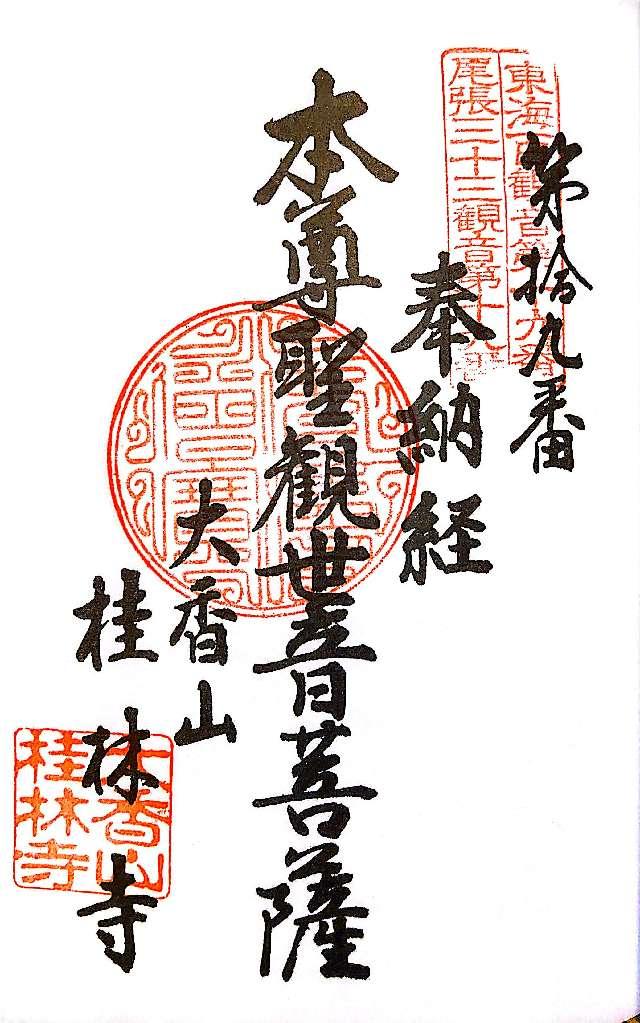 第拾九番
奉納経
本尊聖観世音菩薩
大香山
桂林寺
東海百観音第十九番
尾張三十三観音第十九番
大香山
桂林寺